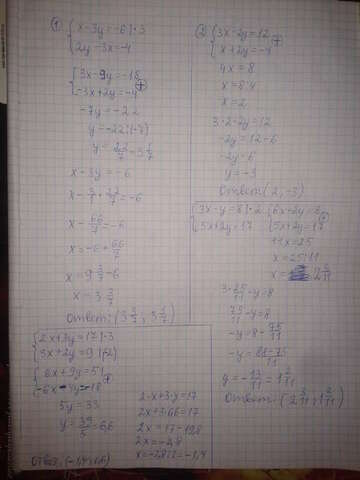 ① { x-3y=-6 | ·3
2y-3x=-4
{ 3x-9y=-18
-3x+2y=-4
-7y=-22
y=-22:(-7)
y=22/7=3 1/7
x-3y=-6
x-66/7=-6
x=-6+66/7
x=9 3/7-6
x=3 3/7
Ответ: (3 3/7; 3 1/7)
② { 3x-2y=12
x+2y=-4
4x=8
x=8:4
x=2
3·2-2y=12
-2y=12-6
-2y=6
y=-3
Ответ(2;-3)
{ 3x-y=8 | ·2
5x+2y=17
5x+2y=17
11x=25
x=25:11
3·25/11-y=8
75/11-y=8
-y=8-75/11
Ответ:
{ 2x+3y=17 | ·3
3x+2y=9 | (-2)
{ 6x+9y=51
-6x-4y=-18
5y=33
y=33/5=6,6
2·x+3·y=17
2x+3·6,6=17
2x=17-19,8
2x=-2,8
x=-2,8:2=-1,4
Ответ: (-1,4; 6,6)